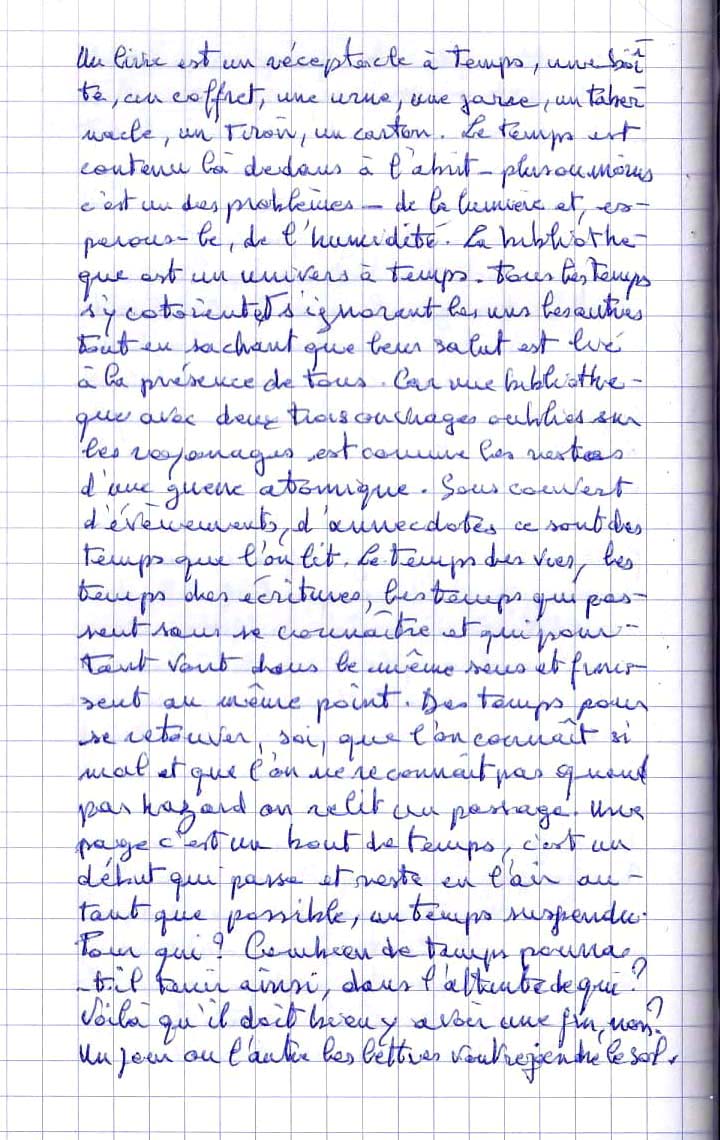 Un livre est un réceptacle à temps, une boî
te, un coffret, une urne, une jarre, un taber
nacle, un tiroir, un carton. Le temps est
contenu là dedans à l'abrit - plus ou moins
c'est un des problèmes - de la lumière et, es-
perons-le, de l'humidité. La bibliothe-
que est un univers à temps. Tous les temps
s'y cotoient et s'ignorent les uns les autres
tout en sachant que leur salut est livré
à la présence de tous. Car une bibliothe-
que avec deux trois ouvrages oubliés sur
les rayonnages est comme les restes
d'une guerre atomique. Sous couvert
d'évènements, d'annecdotes ce sont des
temps que l'on lit. Le temps des vies, les
temps des écritures, les temps qui pas-
sent sans se connaître et qui pour-
tant vont dans le même sens et finis-
sent au même point. Des temps pour
se retouver, soi, que l'on connaît si
mal et que l'on ne reconnait pas quand
par hazard on relit un passage. Une
page c'est un bout de temps, c'est un
début qui passe et reste en l'air au-
tant que possible, un temps suspendu.
Pour qui? Combien de temps pourra
-t-il tenir ainsi, dans l'attente de qui?
Voilà qu'il doit bien y avoir une fin, non?
Un jour ou l'autre les lettres vont rejoindre le sol.